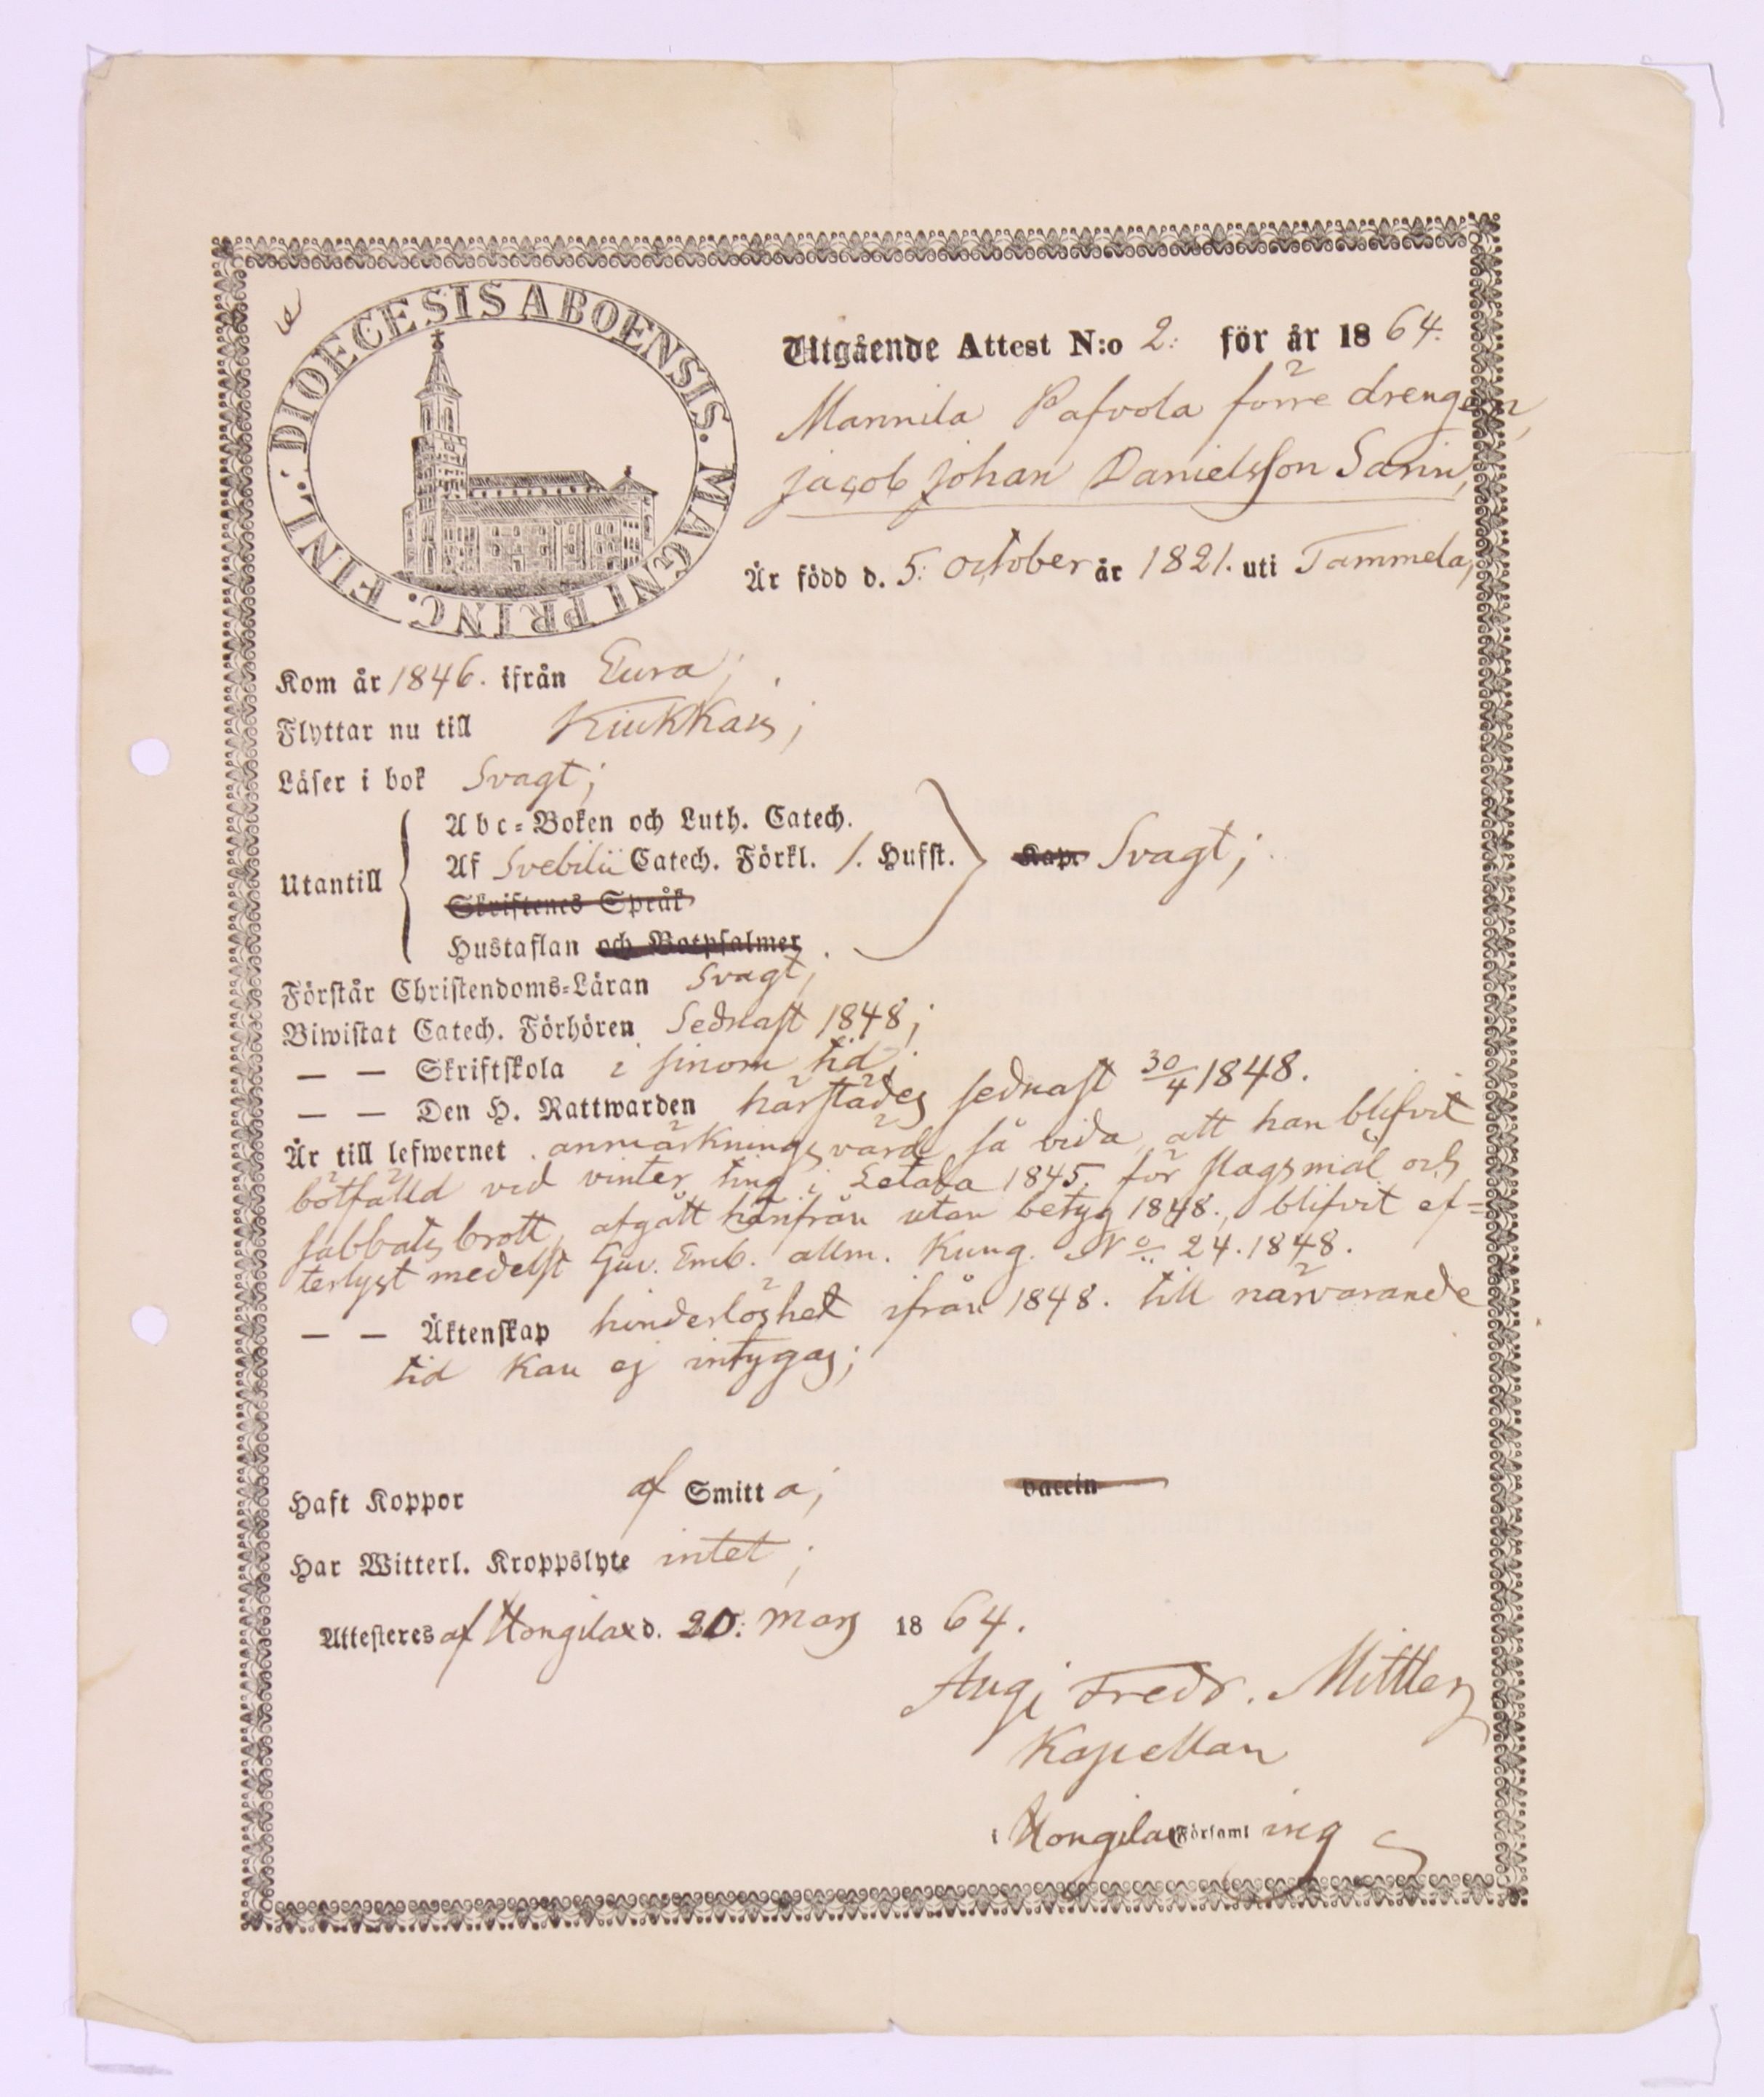 DIOECESIS ABOENSIS. MAGNI PRINC. FINL.:
Utgående Attest N:o 2: för år 1864.
Mannila Pafvola förre drengen,
Jacob Johan Danielsson Sarin,
Är född d. 5: october år 1821. uti Tammela,
Kom år 1846. ifrån Eura;
Flyttar nu till Kiukkais;
Läser i bok Svagt;
Abc-Boken och Luth. Catech.
Utantill Af Svebilii Catech. Förkl. 1. Hufst. Kap. Svagt;
Skriftenes Språk
Hustaflan och Botpsalmer
Förstår Christendoms-Läran Svagt;
Biwistat Catech. Förhören Sednast 1848;
— — Skriftskola i sinom tid;
— — Den H. Nattwarden härstädes sednast 30/4 1848.
Är till lefwernet anmärkningsvärd så vida, att han blifvit
botfälld vid vinter ting i Letala 1845. för slagsmål och
sabbats brott, afgått härifrån utan betyg 1848., blifvit ef=
terlyst medelst Guv. Emb. allm. Kung. No 24. 1848.
— — Äktenskap hinderlöshet ifrån 1848. till närvarande
tid kan ej intygas;
Haft Koppor af Smitta; vaccin
Har Witterl. Kroppslyte intet;
Attesteres af Hongilax d. 20: Mars 1864.
Aug. Fredr. Mittler
Kapellan
i Hongilax Församling